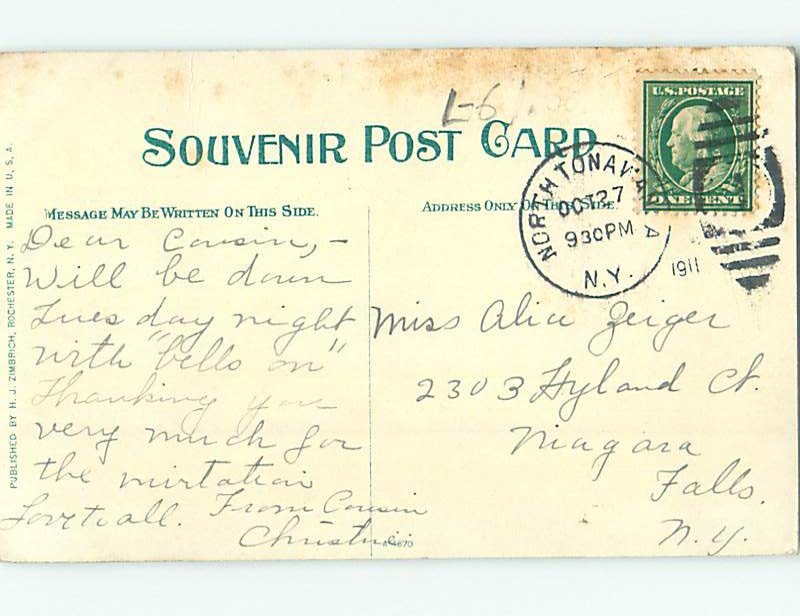 L-6
U.S. POSTAGE
SOUVENIR POST CARD
NORTH TONAWANDA
OCT 27
930PM
N.Y.
1911
ONE CENT
MESSAGE MAY BE WRITTEN ON THIS SIDE.
ADDRESS ONLY ON THIS SIDE.
PUBLISHED BY H. J. ZIMBRICH, ROCHESTER, N. Y. MADE IN U. S. A.
Dear Cousin,-
Will be down
Tues day night
with "bells on"
Thanking you
very much for
the invitation
Love to all. From Cousin
Miss Alice Zeiger
2303 Hyland Ct.
Niagara
Falls.
N.Y.